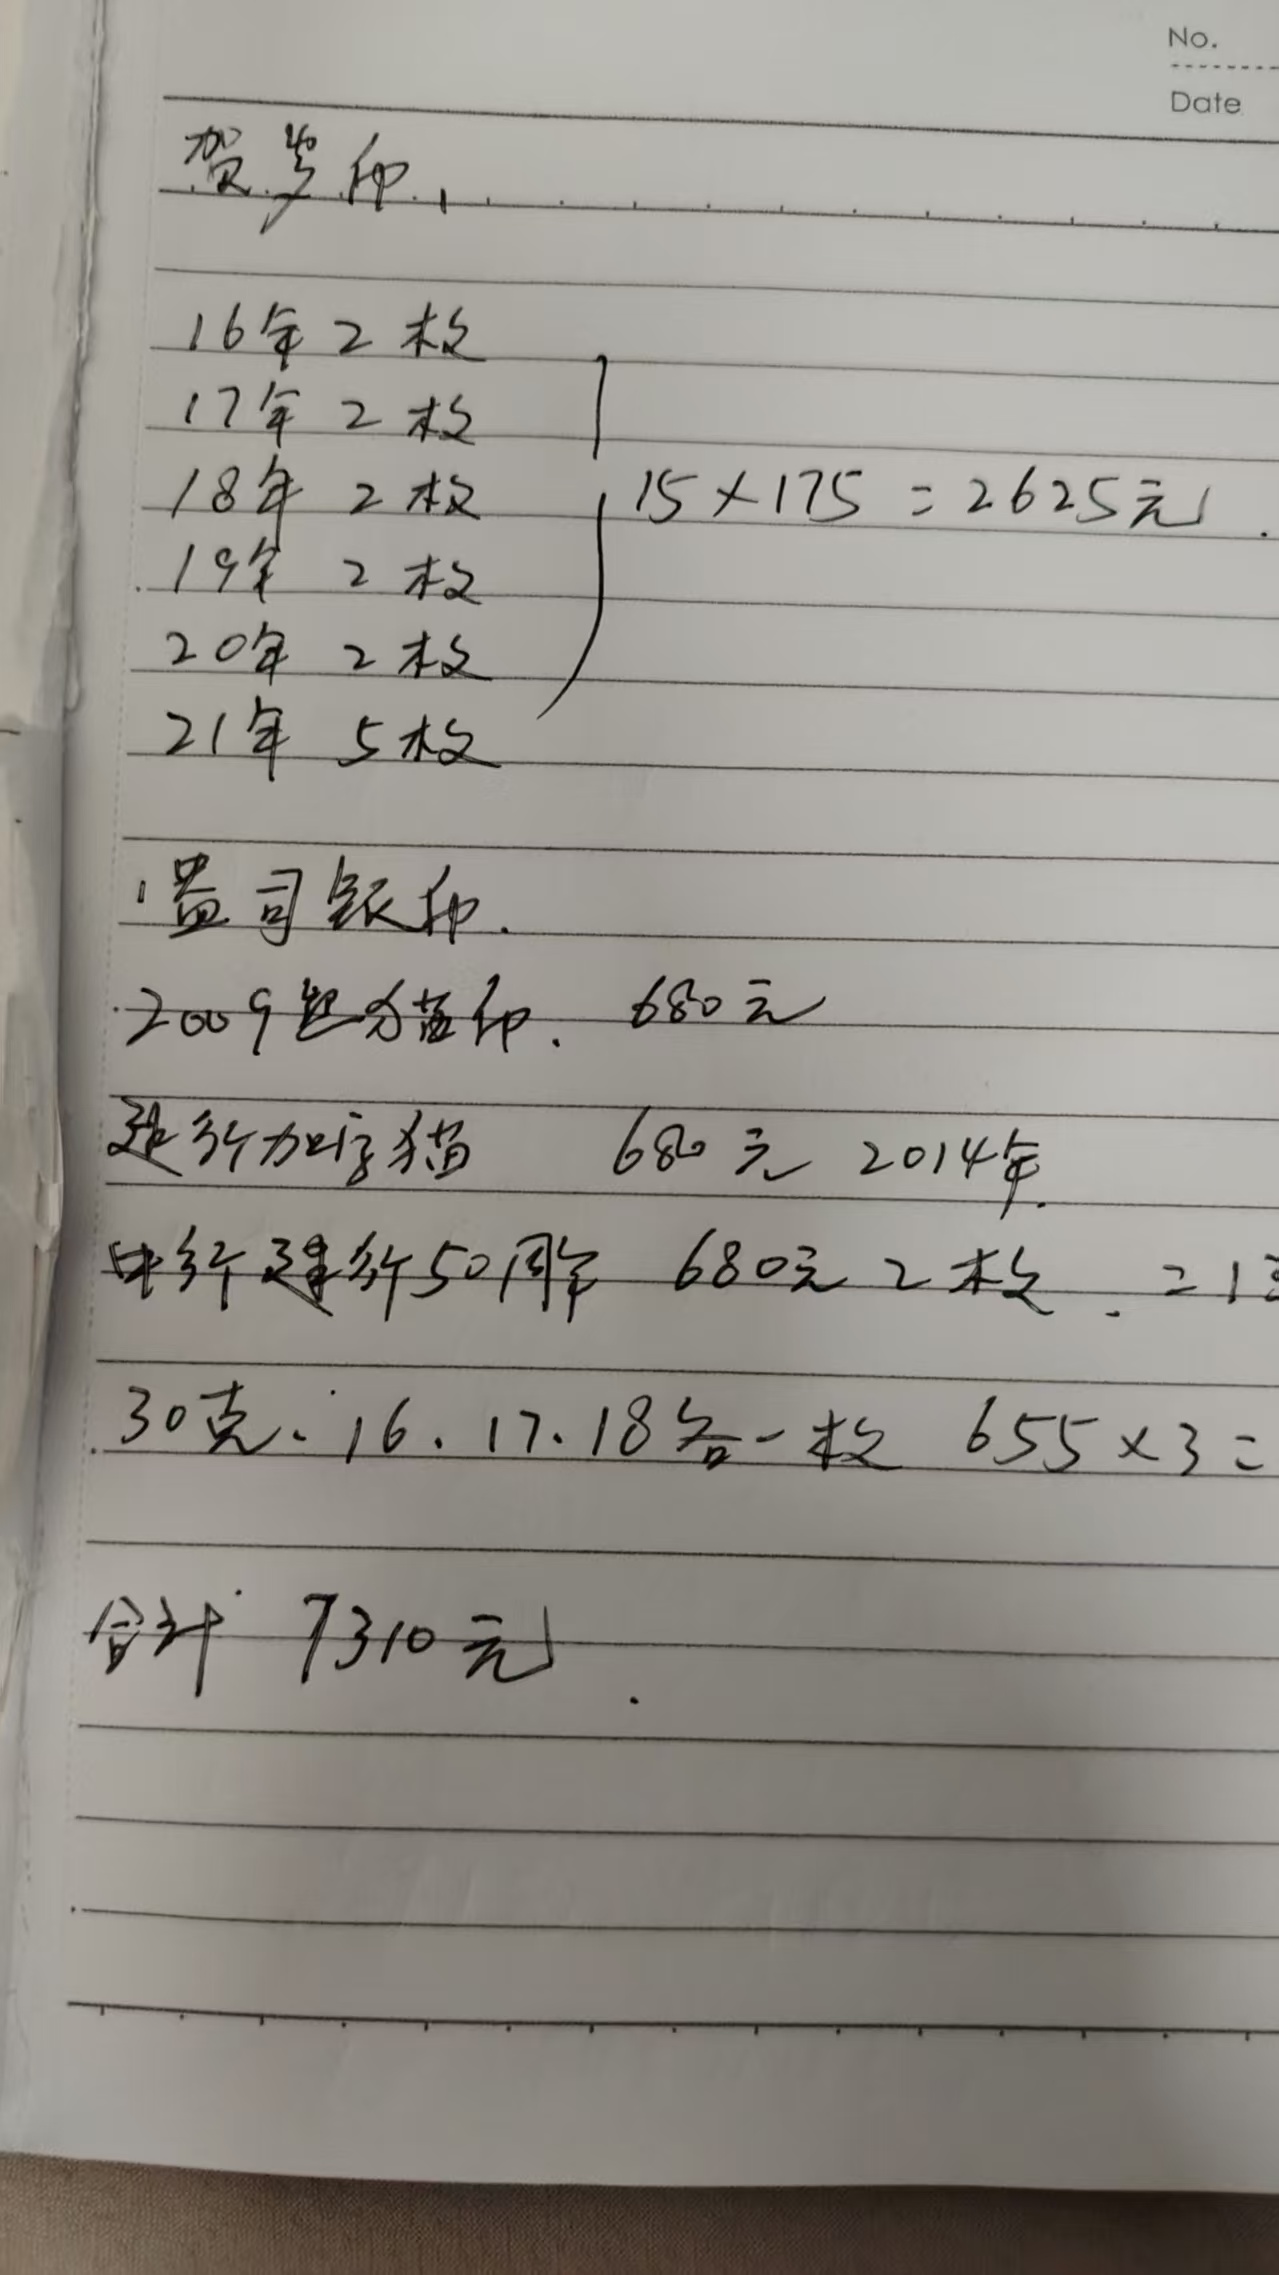 No.
Date
贺岁币
16年 2枚
17年 2枚
18年 2枚
15×175=2625元
19年 2枚
20年 2枚
21年 5枚
1盎司银币.
2009 猫币. 680元
建行加字猫 680元 2014年.
中行建行50周年 680元 2枚. =13
30克. 16. 17. 18各一枚 655×3=
合计 7310元